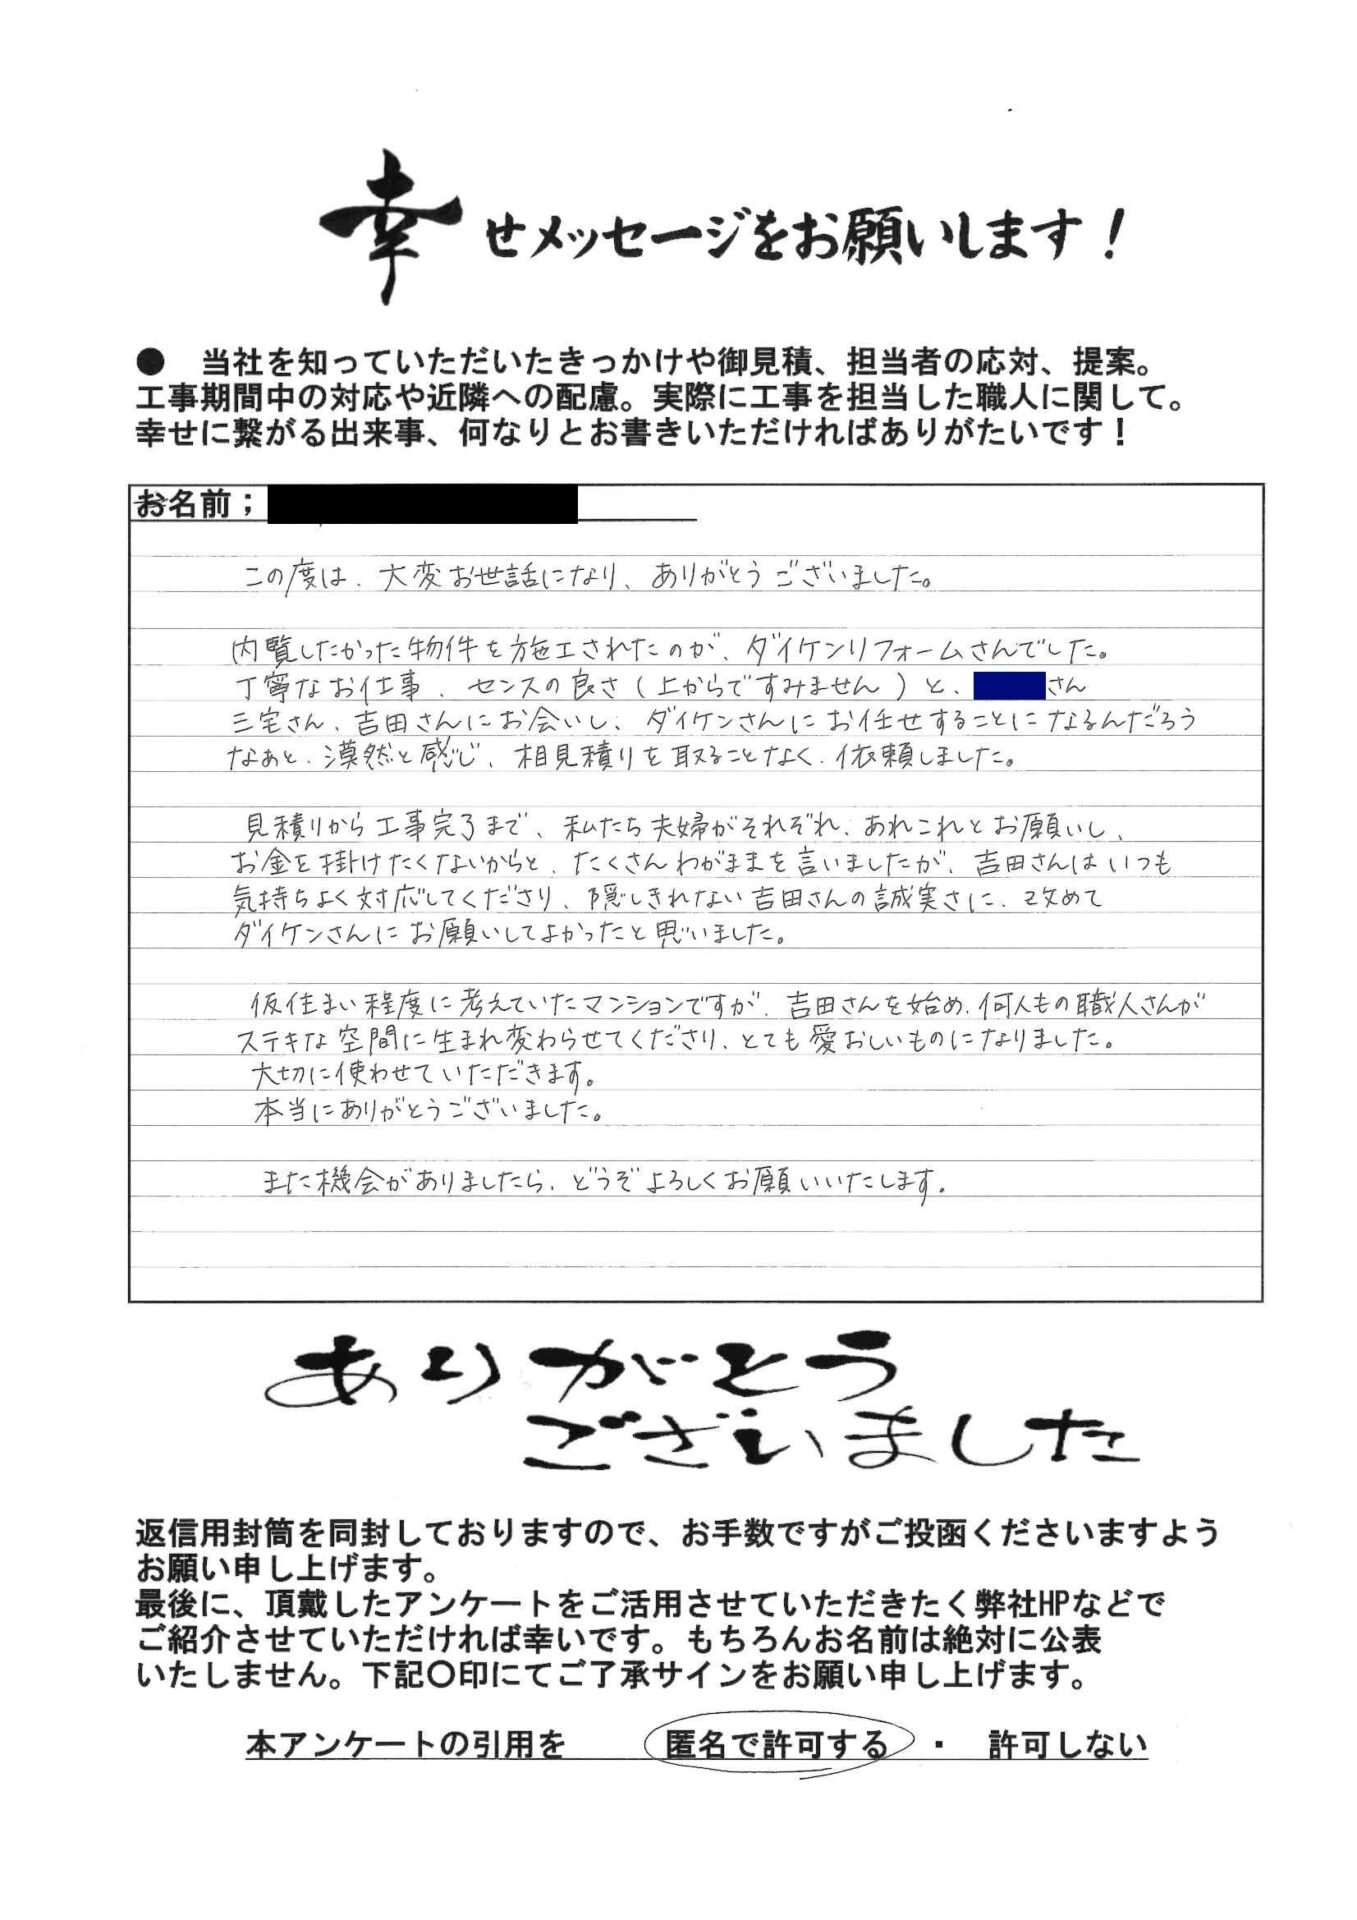 幸せメッセージをお願いします！
● 当社を知っていただいたきっかけや御見積、担当者の応対、提案。
工事期間中の対応や近隣への配慮。実際に工事を担当した職人に関して。
幸せに繋がる出来事、何なりとお書きいただければありがたいです！
お名前；
この度は、大変お世話になり、ありがとうございました。
内覧したかった物件を施工されたのが、ダイケンリフォームさんでした。
丁寧なお仕事、センスの良さ（上からですみません）と、さん
三宅さん、吉田さんにお会いし、ダイケンさんにお任せすることになるんだろう
なぁと、漠然と感じ、相見積りを取ることなく、依頼しました。
見積りから工事完了まで、私たち夫婦がそれぞれ、あれこれとお願いし、
お金を掛けたくないからと、たくさんわがままを言いましたが、吉田さんはいつも
気持ちよく対応してくださり、隠しきれない吉田さんの誠実さに、改めて
ダイケンさんにお願いしてよかったと思いました。
仮住まい程度に考えていたマンションですが、吉田さんを始め、何人もの職人さんが
ステキな空間に生まれ変わらせてくださり、とても愛おしいものになりました。
大切に使わせていただきます。
本当にありがとうございました。
また機会がありましたら、どうぞよろしくお願いいたします。
ありがとう
ございました
返信用封筒を同封しておりますので、お手数ですがご投函くださいますよう
お願い申し上げます。
最後に、頂戴したアンケートをご活用させていただきたく弊社HPなどで
ご紹介させていただければ幸いです。もちろんお名前は絶対に公表
いたしません。下記〇印にてご了承サインをお願い申し上げます。
本アンケートの引用を 匿名で許可する ・ 許可しない